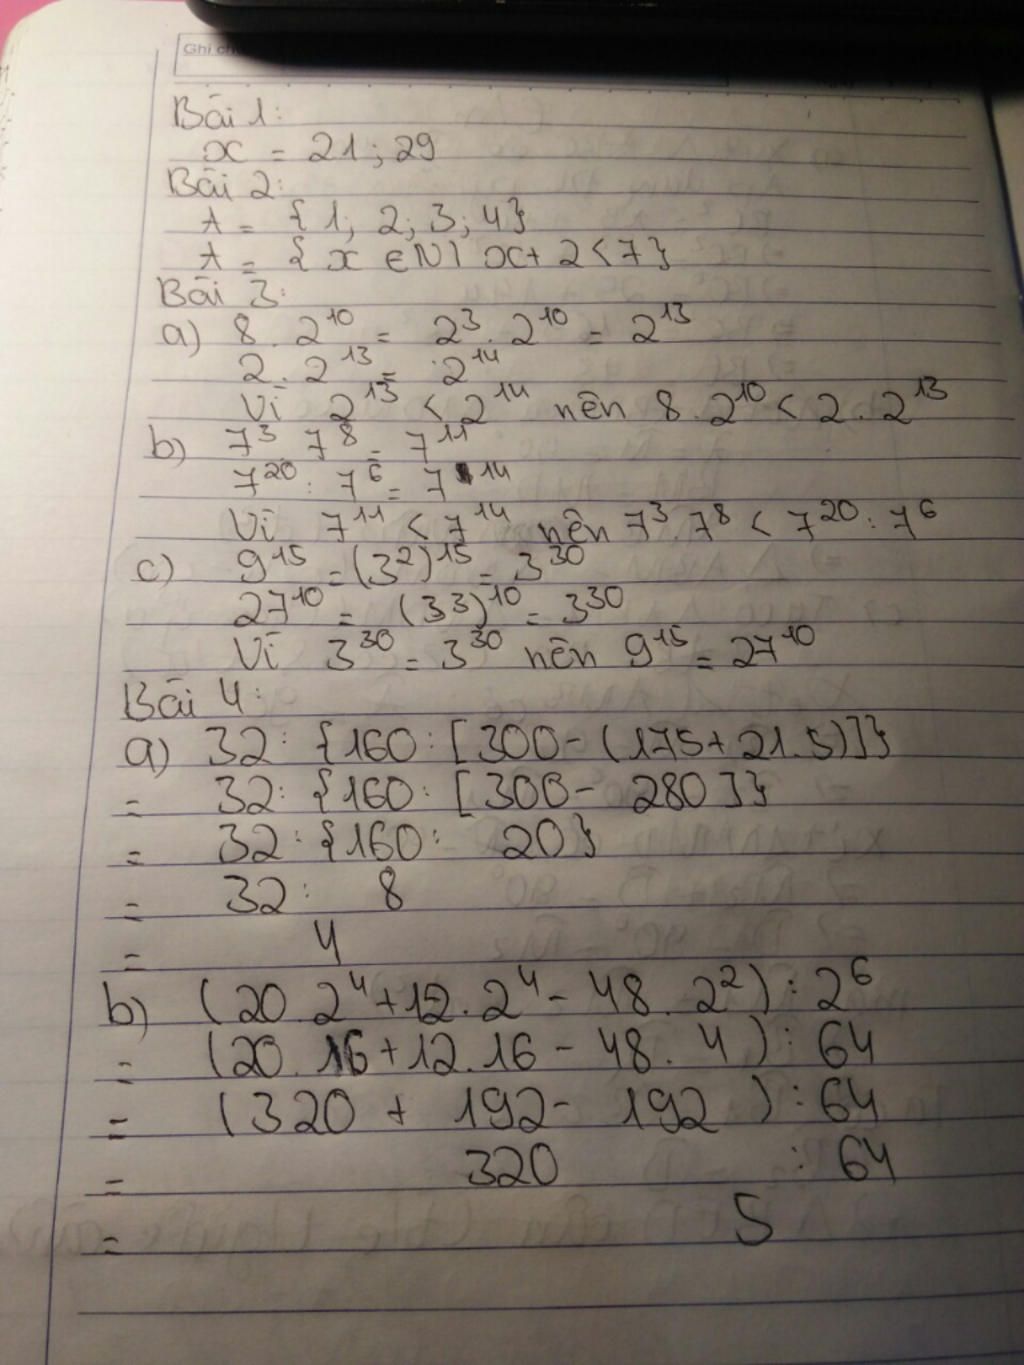 Ghi ch
Bài 1:
x = 21; 29
Bài 2:
A = {1; 2; 3; 4}
A = {x ∈ N | x + 2 < 7}
Bài 3:
a) 8 . 2¹⁰ = 2³ . 2¹⁰ = 2¹³
2 . 2¹³ = 2¹⁴
Vì 2¹³ < 2¹⁴ nên 8 . 2¹⁰ < 2 . 2¹³
b) 7³ . 7⁸ = 7¹¹
7²⁰ : 7⁶ = 7¹⁴
Vì 7¹¹ < 7¹⁴ nên 7³ . 7⁸ < 7²⁰ : 7⁶
c) 9¹⁵ = (3²)¹⁵ = 3³⁰
27¹⁰ = (3³)¹⁰ = 3³⁰
Vì 3³⁰ = 3³⁰ nên 9¹⁵ = 27¹⁰
Bài 4:
a) 32 : {160 : [300 - (175 + 21 . 5)]}
= 32 : {160 : [300 - 280]}
= 32 : {160 : 20}
= 32 : 8
= 4
b) (20 . 2⁴ + 12 . 2⁴ - 48 . 2²) : 2⁶
= (20 . 16 + 12 . 16 - 48 . 4) : 64
= (320 + 192 - 192) : 64
= 320 : 64
= 5